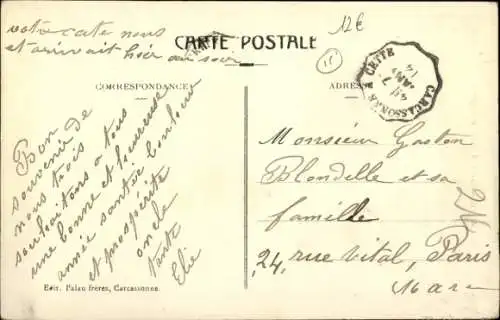 votre carte nous
est arrivait hier au soir
12€
CARTE POSTALE
CORRESPONDANCE
ADRESSE
CETTE
CARCASSONNE
7
14
Bon
souvenir de
nous trois
souhaitons a tous
une bonne et heureuse
année santée bonheur
et prospérité
oncle
tante
Elie
Monsieur Gaston
Blondelle et sa
famille
24, rue Vital, Paris
16 arr
Edit. Palau frères, Carcassonne.